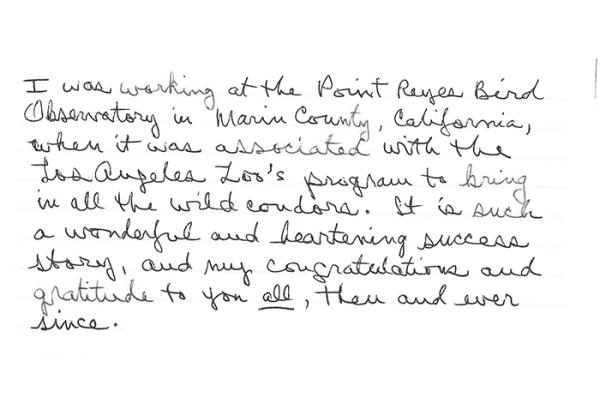 I was working at the Point Reyes Bird
Observatory in Marin County, California,
when it was associated with the
Los Angeles Zoo's program to bring
in all the wild condors. It is such
a wonderful and heartening success
story, and my congratulations and
gratitude to you all, then and ever
since.